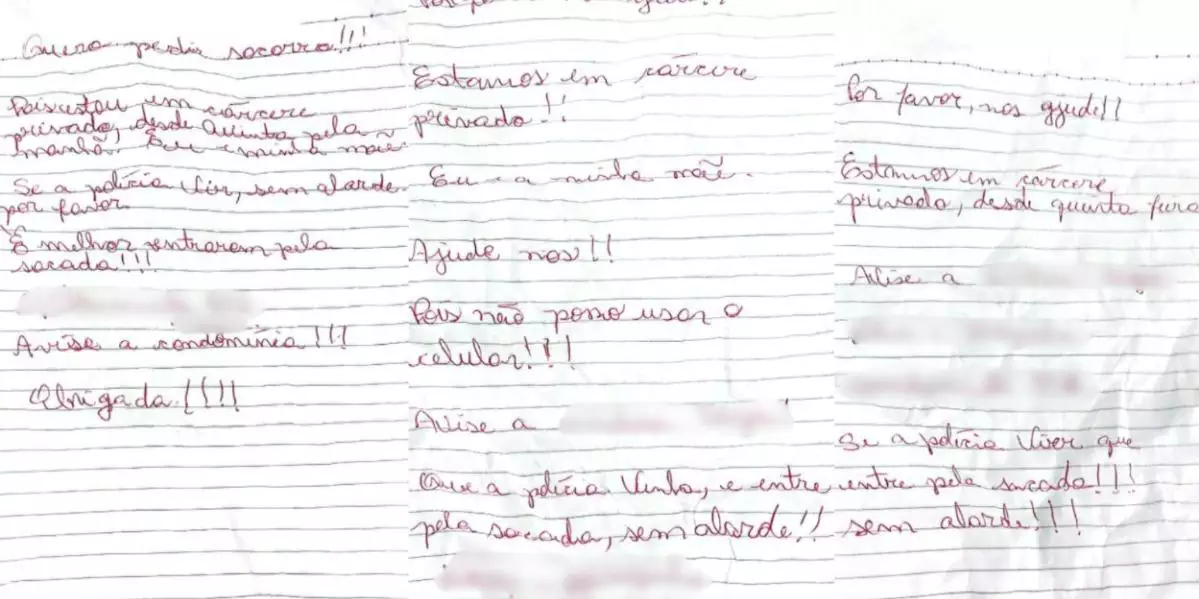 Quero pedir socorro!!!
Pois estou em cárcere
privado, desde Quinta pela
manhã. Eu e minha mãe.
Se a polícia vir, sem alarde
por favor
É melhor entrarem pela
sacada!!!
Avise a condomínia!!!
Obrigada!!!!
Estamos em cárcere
privado!!
Eu e a minha mãe.
Ajude nos!!
Pois não posso usar o
celular!!!
Avise a
Que a polícia Venha, e entre
pela sacada, sem alarde!!
Por favor, nos ajude!!
Estamos em cárcere
privado, desde quinta feira
Avise a
Se a polícia Vier que
entre pela sacada!!!
sem alarde!!!